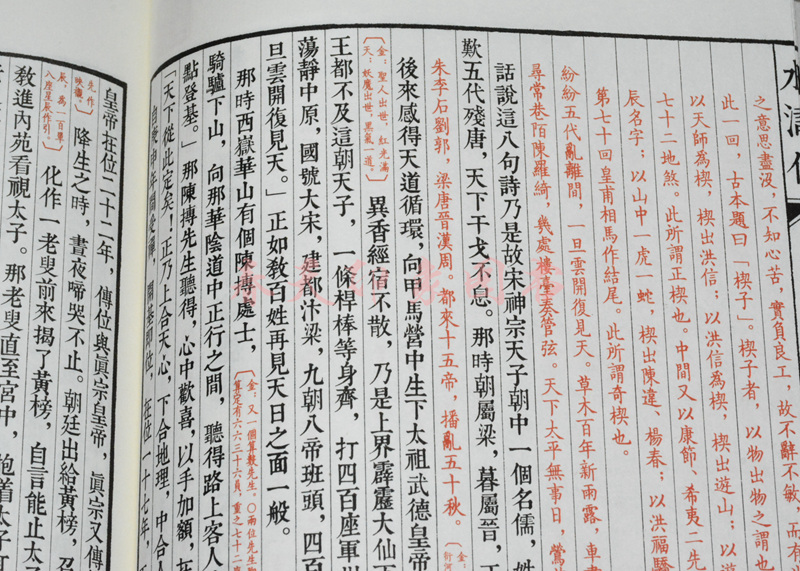 水滸
之意思盡沒，不知心苦，實負良工，故不辭不敏，而有
此一回，古本題曰「楔子」。楔子者，以物出物之謂也
以天師為楔，楔出洪信；以洪信為楔，楔出遊山；以遊
七十二地煞。此所謂正楔也。中間又以康節、希夷二先
辰名字；以山中一虎一蛇，楔出陳達、楊春；以洪福驕
第七十回皇甫相馬作結尾。此所謂奇楔也。
紛紛五代亂離間，一旦雲開復見天。草木百年新雨露，車書
尋常巷陌陳羅綺，幾處樓臺奏管弦。天下太平無事日，鶯
話說這八句詩乃是故宋神宗天子朝中一個名儒，姓
歎五代殘唐，天下干戈不息。那時朝屬梁，暮屬晉，正
朱李石劉郭，梁唐晉漢周。都來十五帝，播亂五十秋。
後來感得天道循環，向甲馬營中生下太祖武德皇帝
〔金：聖人出世，紅光滿天；妖魔出世，黑氣一道。〕異香經宿不散，乃是上界霹靂大仙下
王都不及這朝天子，一條桿棒等身齊，打四百座軍州
蕩靜中原，國號大宋，建都汴梁，九朝八帝班頭，四百
旦雲開復見天。」正如教百姓再見天日之面一般。
那時西嶽華山有個陳摶處士，〔金：又一個算數先生。○兩位先生
算定有六六三十六員，重之七十二
騎驢下山，向那華陰道中正行之間，聽得路上客人
點登基。」那陳摶先生聽得，心中歡喜，以手加額，在
「天下從此定矣，正乃上合天心，下合地理，中合人
自庚申年間受禪，開基即位，在位一十七年，
皇帝在位二十二年，傳位與真宗皇帝，真宗又傳
降生之時，晝夜啼哭不止。朝廷出給黃榜，召
化作一老叟前來揭了黃榜，自言能止太子
教進內苑看視太子。那老叟直至宮中，抱着太子